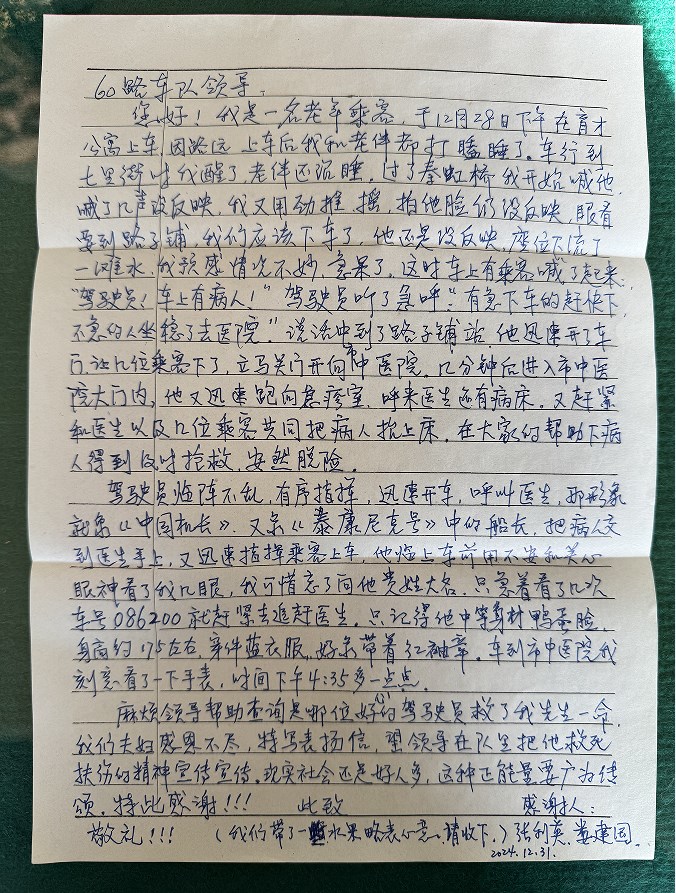 60路车队领导:
您好!我是一名老年乘客,于12月28日下午在育才
公寓上车,因路远,上车后我和老伴都打瞌睡了。车行到
七里街时我醒了,老伴还沉睡,过了秦虹桥我开始喊他,
喊了几声没反映,我又用劲推,摇,拍他脸仍没反映,眼看
要到路子铺,我们应该下车了,他还是没反映,座位下流了
一滩水,我预感情况不妙,急呆了,这时车上有乘客喊了起来,
"驾驶员!车上有病人!"驾驶员听了急呼"有急下车的赶快下,
不急的人坐稳了去医院"。说话中到了路子铺站,他迅速开了车
门,让几位乘客下了,立马关门开向市中医院。几分钟后进入市中医
院大门内,他又迅速跑向急疹室,呼来医生还有病床。又赶紧
和医生以及几位乘客共同把病人抬上床,在大家的帮助下病
人得到及时抢救,安然脱险。
驾驶员临阵不乱,有序指挥,迅速开车,呼叫医生,那形象
就象《中国机长》,又象《泰康尼克号》中的船长,把病人交
到医生手上,又迅速指挥乘客上车,他临上车前用不安和关心
眼神看了我几眼,我可惜忘了问他贵姓大名,只急着看了几次
车号086200就赶紧去追赶医生。只记得他中等身材鸭蛋脸,
身高约175左右,穿件蓝衣服,好象带着红袖章。车到市中医院我
刻意看了一下手表,时间下午4:35多一点点。
麻烦领导帮助查询是哪位好心的驾驶员救了我先生一命,
我们夫妇感恩不尽,特写表扬信,望领导在队里把他救死
扶伤的精神宣传宣传,现实社会还是好人多,这种正能量要广为传
颂。特此感谢!!! 此致 感谢人:
敬礼!!! (我们带了一些水果略表心意,请收下。)张利英、娄建国。
2024.12.31.